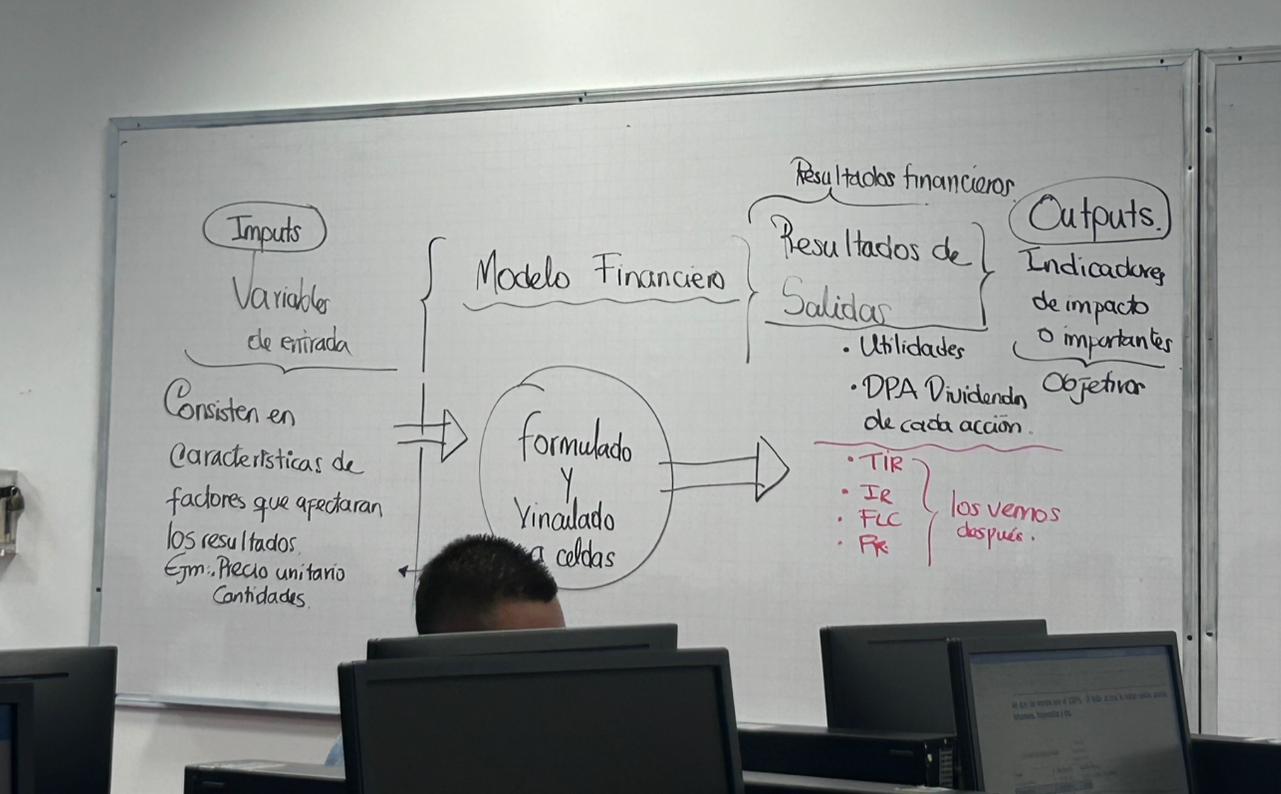 Imputs
Variables
de entrada
Consisten en
Características de
factores que afectaran
los resultados.
Ejm: Precio unitario
Cantidades.
Modelo Financiero
formulado
y
Vinculado
a celdas
Resultados financieros.
Resultados de
Salidas
• Utilidades
• DPA Dividendo
de cada acción.
• TIR
• IR
• FLC
• PR
los vemos
después.
Outputs.
Indicadores
de impacto
o importantes
Objetivos